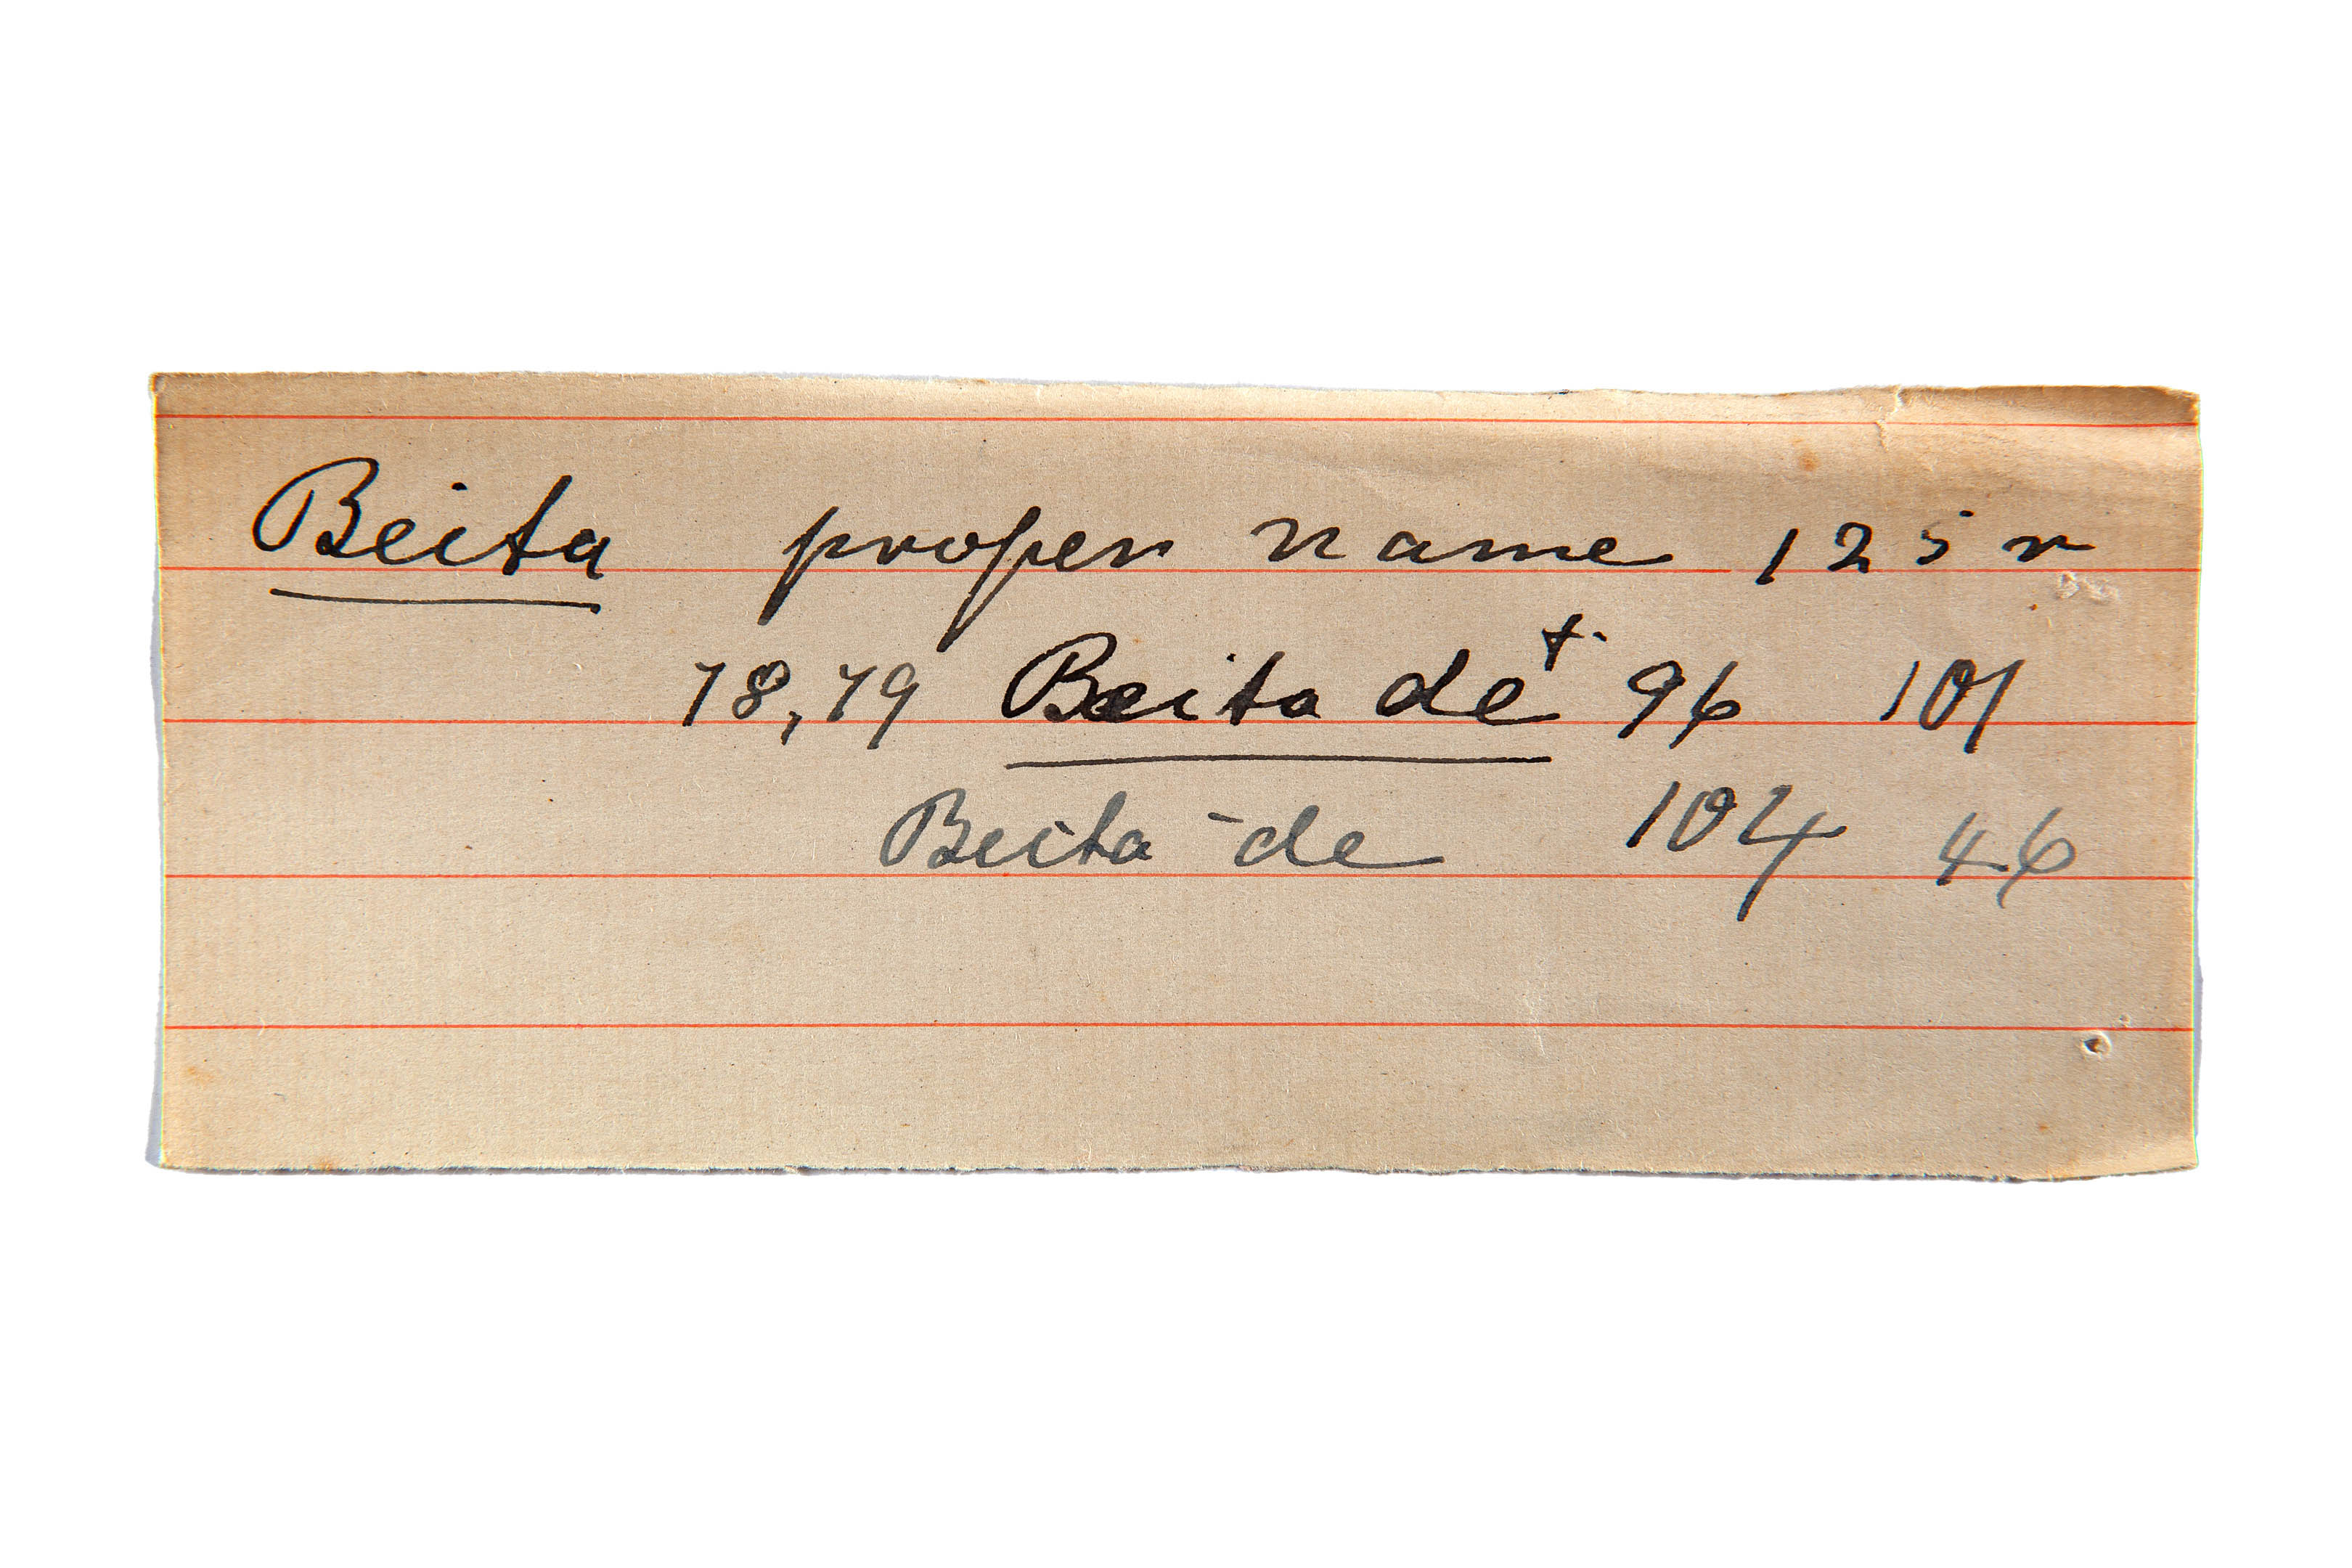 Beita proper name 125 r
78, 79 Beita de + 96 101
Beita - de 104 46